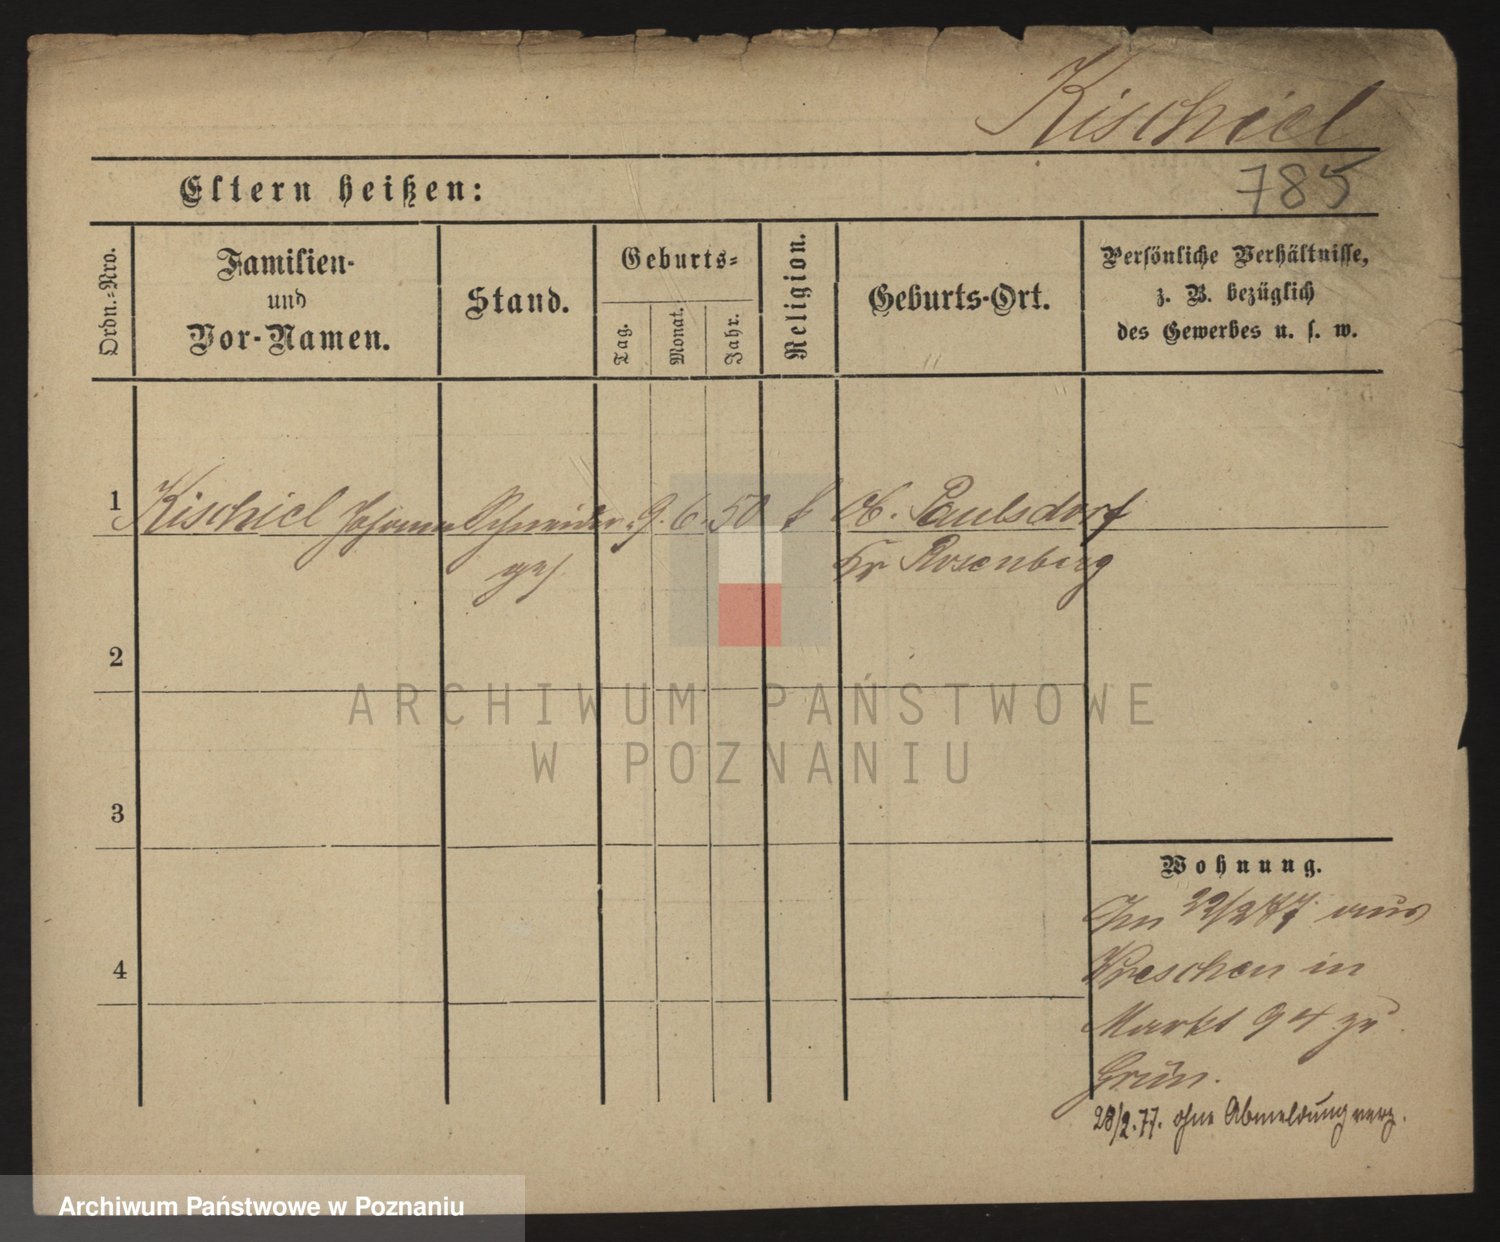 Kischiel
785
Eltern heißen:
Ordn.-Nro.
Familien-
und
Vor-Namen.
Stand.
Geburts-
Tag.
Monat.
Jahr.
Religion.
Geburts-Ort.
Persönliche Verhältnisse,
z. B. bezüglich
des Gewerbes u. s. w.
1 Kischiel Johann Schneider 9. 6. 50 k Ob. Paulsdorf
ges Kr Rosenberg
2
3
4
Wohnung.
22/2 77 aus
Wreschen in
Markt 94 zu
Grün.
28/2. 77. ohne Abmeldung verz.
ARCHIWUM PAŃSTWOWE
W POZNANIU
Archiwum Państwowe w Poznaniu